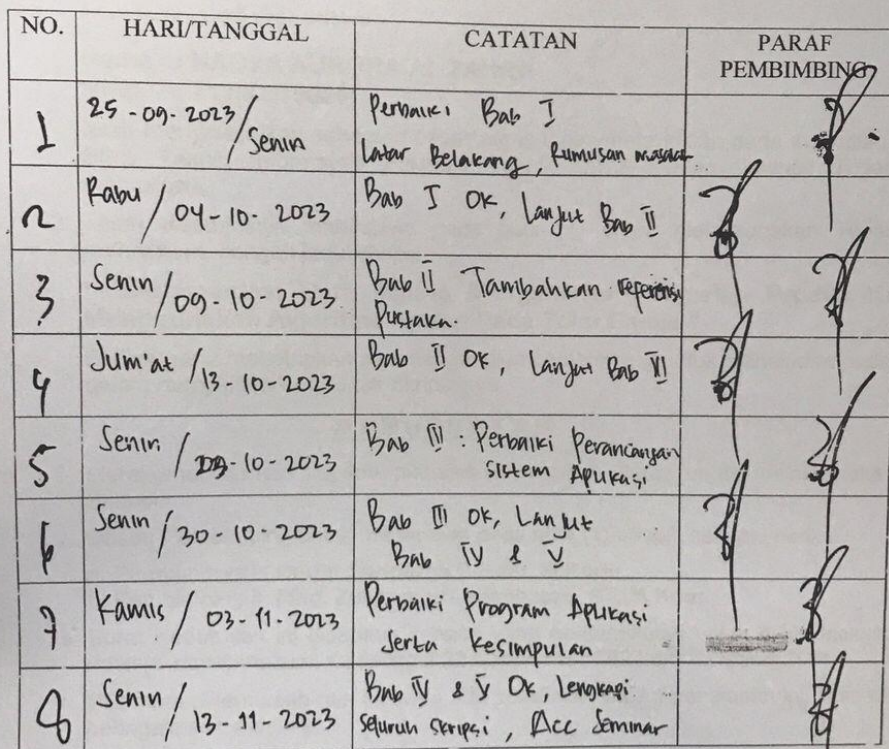 NO. HARI/TANGGAL CATATAN PARAF PEMBIMBING
1 25-09-2023/Senin Perbaiki Bab I
Latar Belakang, Rumusan masalah
2 Rabu/04-10-2023 Bab I OK, Lanjut Bab II
3 Senin/09-10-2023 Bab II Tambahkan referensi
Pustaka.
4 Jum'at/13-10-2023 Bab II OK, Lanjut Bab
5 Senin/ -10-2023 Bab III : Perbaiki Perancangan
Sistem Aplikasi
6 Senin/30-10-2023 Bab III OK, Lanjut
Bab IV & V
7 Kamis/03-11-2023 Perbaiki Program Aplikasi
Serta Kesimpulan
8 Senin/13-11-2023 Bab IV & V Ok Lengkapi
seluruh skripsi, Acc Seminar